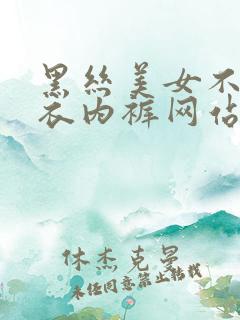 黑丝美女不
衣内裤网佔
休杰克曼
未经同意禁止转载